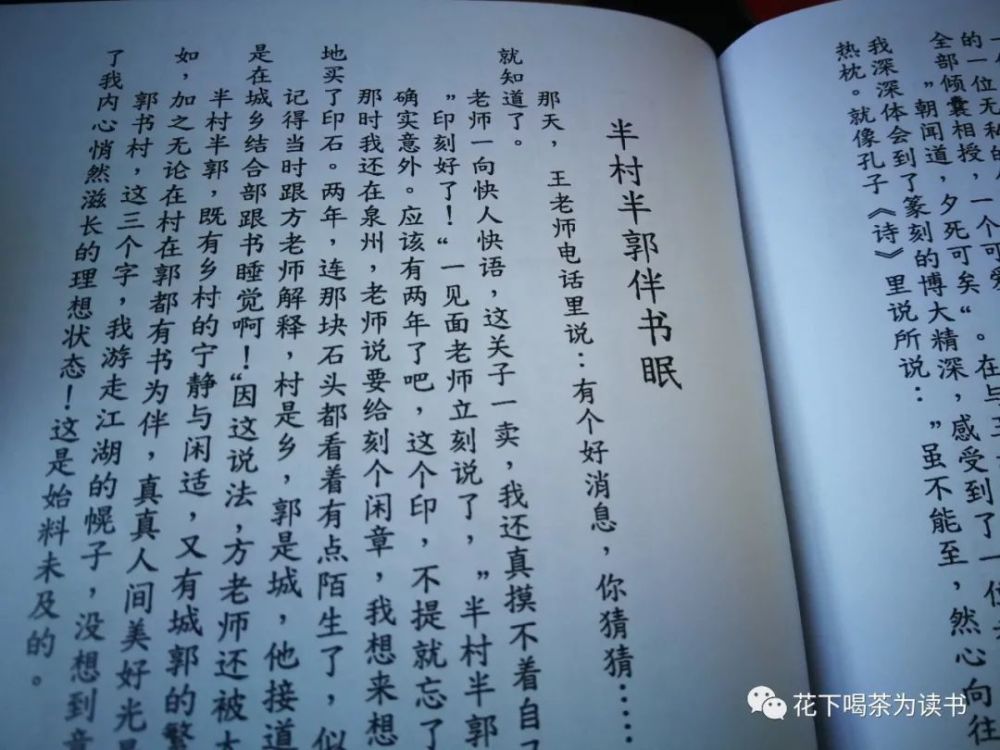 的一位无私的、一个可爱
全部倾囊相授，
”朝闻道，夕死可矣“。在与王
我深深体会到了篆刻的博大精深，感受到了一位
热忱。就像孔子《诗》里说所说：”虽不能至，然心向往
半村半郭伴书眠
那天，王老师电话里说：有个好消息，你猜猜……
就知道了。
老师一向快人快语，这关子一卖，我还真摸不着自己
”印刻好了！“一见面老师立刻说了，”半村半郭
确实意外。应该有两年了吧，这个印，不提就忘了
那时我还在泉州，老师说要给刻个闲章，我想来想
地买了印石。两年，连那块石头都看着有点陌生了，似
记得当时跟方老师解释，村是乡，郭是城，他接道
是在城乡结合部跟书睡觉啊！“因这说法，方老师还被大
半村半郭，既有乡村的宁静与闲适，又有城郭的繁
如，加之无论在村在郭都有书为伴，真真人间美好光景
郭书村，这三个字，我游走江湖的幌子，没想到竟
了我内心悄然滋长的理想状态！这是始料未及的。
花下喝茶为读书